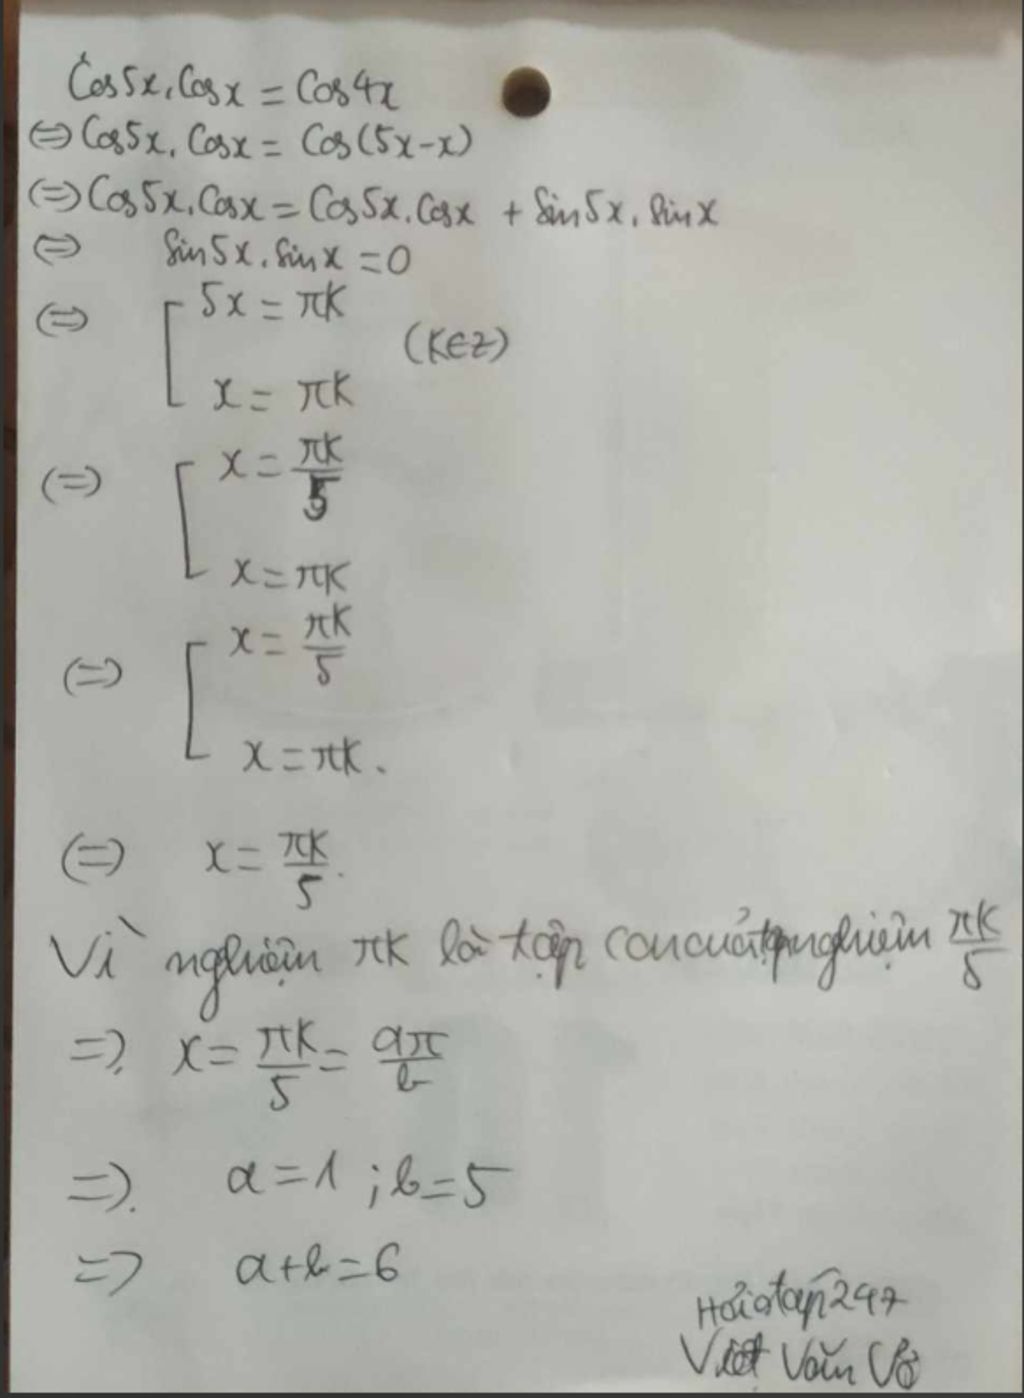 Cos5x.Cosx = Cos4x
(=) Cos5x.Cosx = Cos(5x-x)
(=) Cos5x.Cosx = Cos5x.Cosx + Sin5x.Sinx
(=) Sin5x.Sinx = 0
(=) [ 5x = πK
(K∈Z)
x = πK
(=) [ x = πK/5
x = πK
(=) [ x = πK/5
x = πK.
(=) x = πK/5.
Vì nghiệm πK là tập con của tập nghiệm πK/5
=). x = πK/5 = aπ/b
=). a = 1 ; b = 5
=) a+b = 6
Hỏiđáp247
Việt Văn Võ